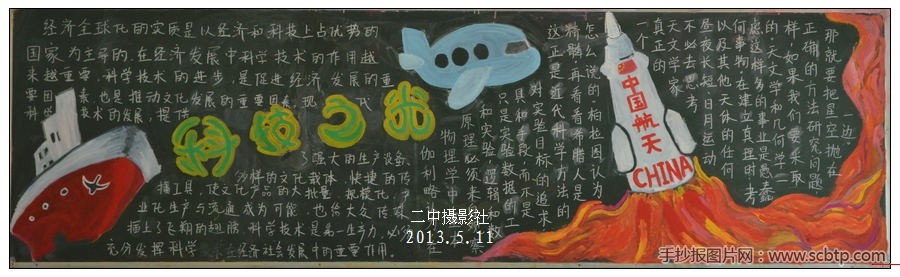 经济全球化的实质是以经济和科技上占优势的
国家为主导的。在经济发展中科学技术的作用越
来越重要,科学技术的进步,是促进经济发展的重
要因素,也是推动文化发展的重要因素。现代
科学技术的发展,提供
科技之光
了强大的生产设备、
多样的文化载体、快捷的传
播工具,使文化产品的大批量、规模化、产
业化生产与流通成为可能,也给大众传媒
插上了飞翔的翅膀。科学技术是第一生产力,必须
充分发挥科学 在经济社会发展中的重要作用。
一边,
那就要把星空
正确的方法研究问题
样,如果我们要采取
的天文学和几何学一
虑这样多的事业是愚蠢
何事物在建立真理时考
以及其他天体的任何
昼夜长短、日月运动
不必去思考
天文学家
真正的
一个
怎么说的。柏拉图认为
精髓再看看希腊人是
这正是近代科学方法的
对实验目标的追求
具和手段,而不是
只是实验数据的工
和实验,逻辑和数
原理必须来
物理学中
伽利略
中国航天
CHINA
二中摄影社
2013.5.11
手抄报图片网:www.scbtp.com